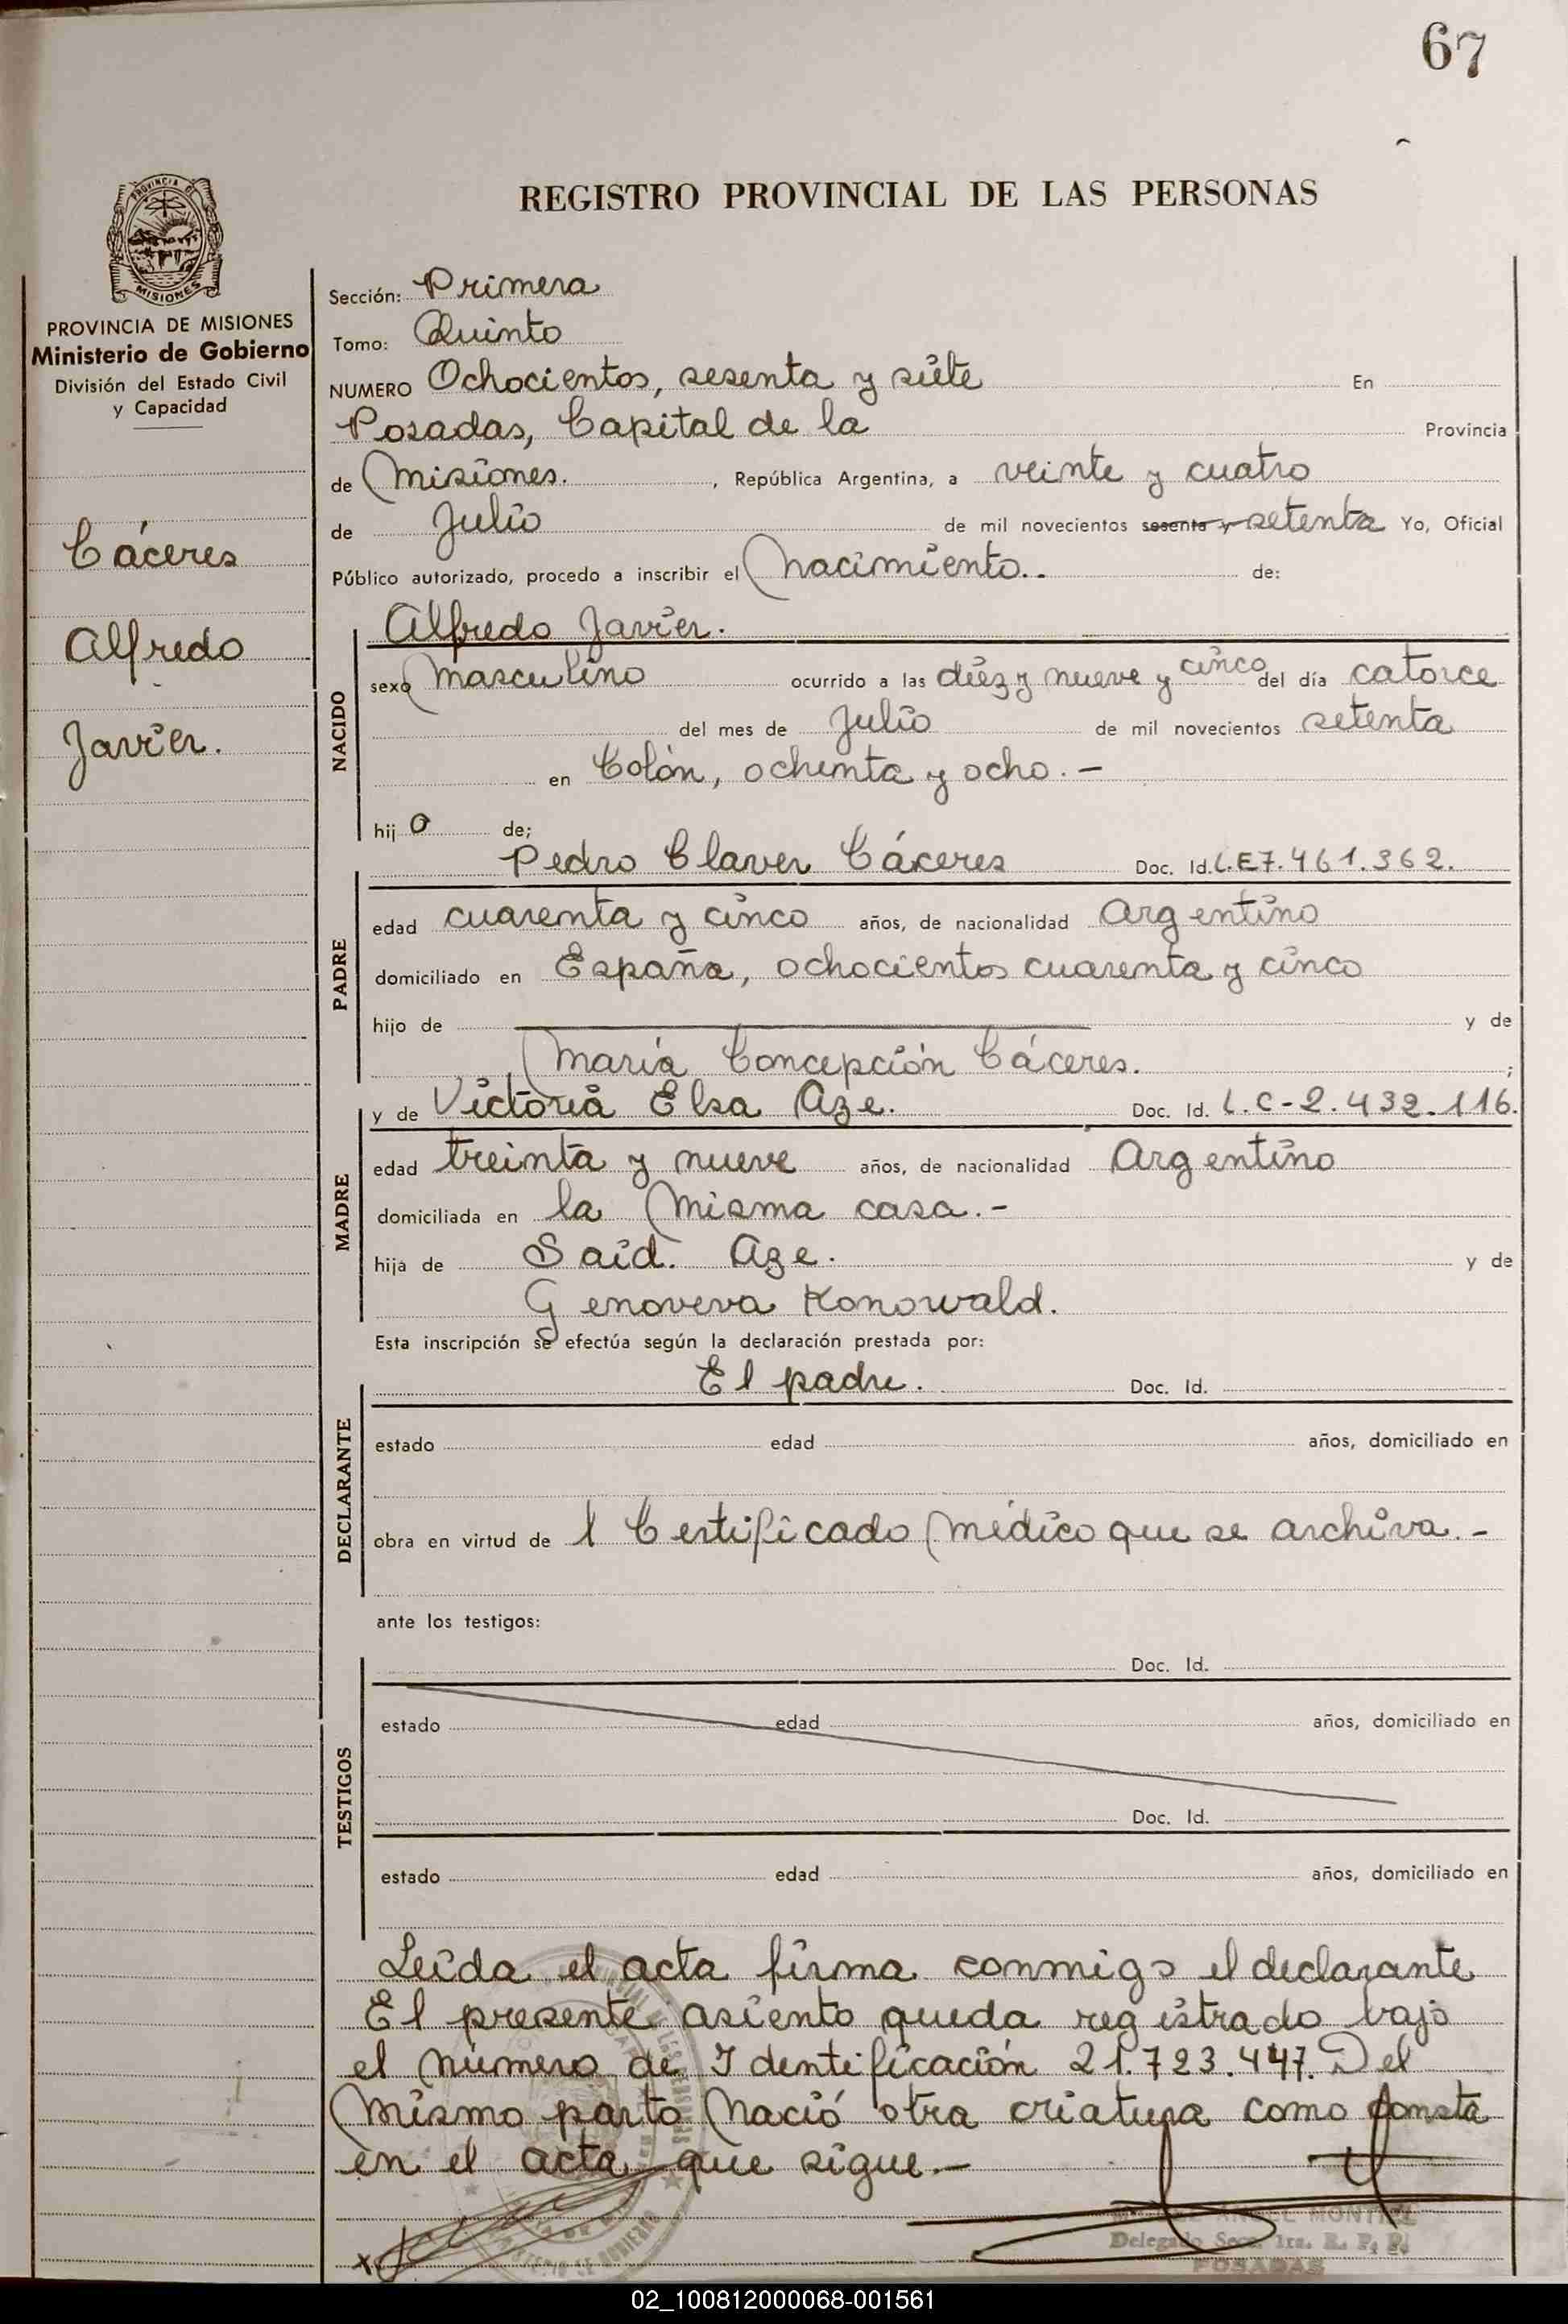 67
REGISTRO PROVINCIAL DE LAS PERSONAS
PROVINCIA DE
MISIONES
PROVINCIA DE MISIONES
Ministerio de Gobierno
División del Estado Civil
y Capacidad
Cáceres
Alfredo
Javier.
Sección: Primera
Tomo: Quinto
NUMERO Ochocientos, sesenta y siete En
Posadas, Capital de la Provincia
de Misiones. , República Argentina, a veinte y cuatro
de Julio de mil novecientos sesenta y setenta Yo, Oficial
Público autorizado, procedo a inscribir el Nacimiento.. de:
Alfredo Javier.
NACIDO
sexo Masculino ocurrido a las diez y nueve y cinco del día catorce
del mes de Julio de mil novecientos setenta
en Colón, ochenta y ocho. -
hij o de;
Pedro Claver Cáceres Doc. Id. L.E7.461.362.
PADRE
edad cuarenta y cinco años, de nacionalidad Argentino
domiciliado en España, ochocientos cuarenta y cinco
hijo de y de
María Concepción Cáceres. ;
y de Victoria Elsa Aze. Doc. Id. L.C-2.432.116.
MADRE
edad treinta y nueve años, de nacionalidad Argentino
domiciliada en la Misma casa. -
hija de Said. Aze. y de
Genoveva Konowald.
Esta inscripción se efectúa según la declaración prestada por:
El padre. Doc. Id.
DECLARANTE
estado edad años, domiciliado en
obra en virtud de l Certificado Médico que se archiva. -
ante los testigos:
Doc. Id.
TESTIGOS
estado edad años, domiciliado en
Doc. Id.
estado edad años, domiciliado en
Leída el acta firma conmigo el declarante
El presente asiento queda registrado bajo
el número de Identificación 21.723.447. Del
Mismo parto Nació otra criatura como consta
en el acta que sigue. -
ANGEL
Delegado Secc. 1ra. R. P. P.
POSADAS
02_100812000068-001561